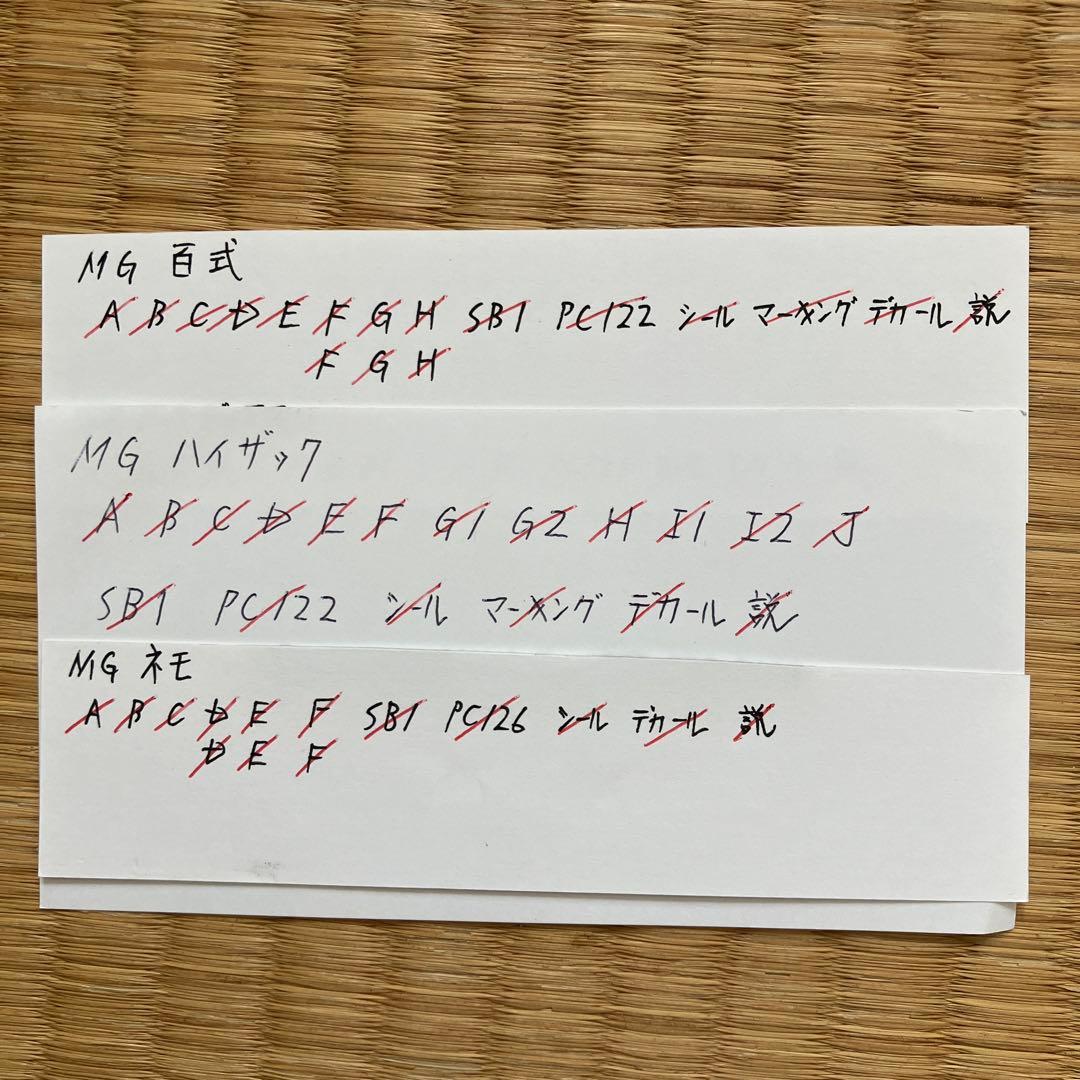 MG 百式
A B C D E F G H SB1 PC122 シール マーキング デカール 説
F G H
MG ハイザック
A B C D E F G1 G2 H I1 I2 J
SB1 PC122 シール マーキング デカール 説
MG ネモ
A B C D E F SB1 PC126 シール デカール 説
D E F